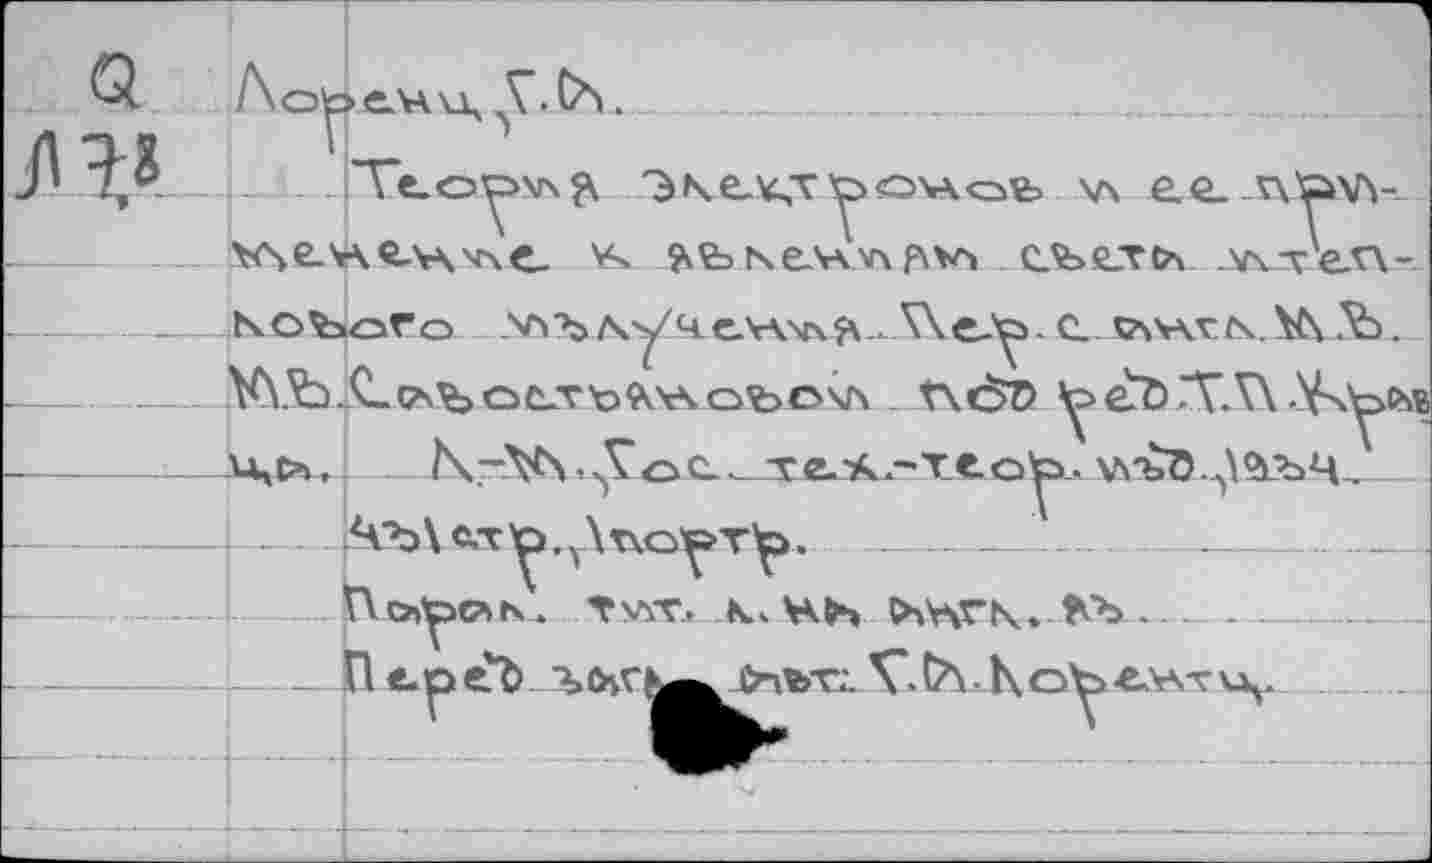 Q Лоренц, Г.А.
Л78 Теория электронов и ее при-
менение к явлениям света и теп-
лового излучения. Пер. с англ. М.В.
И.В. Савостьяновой под ред. Т.П. Крав
ца. Л.-М., Гос. тех.-теор. изд., 1934.
471 стр., 1 портр.
Паралл. тит. л. на англ. яз.
Перед загл. авт.: Г.А. Лорентц.